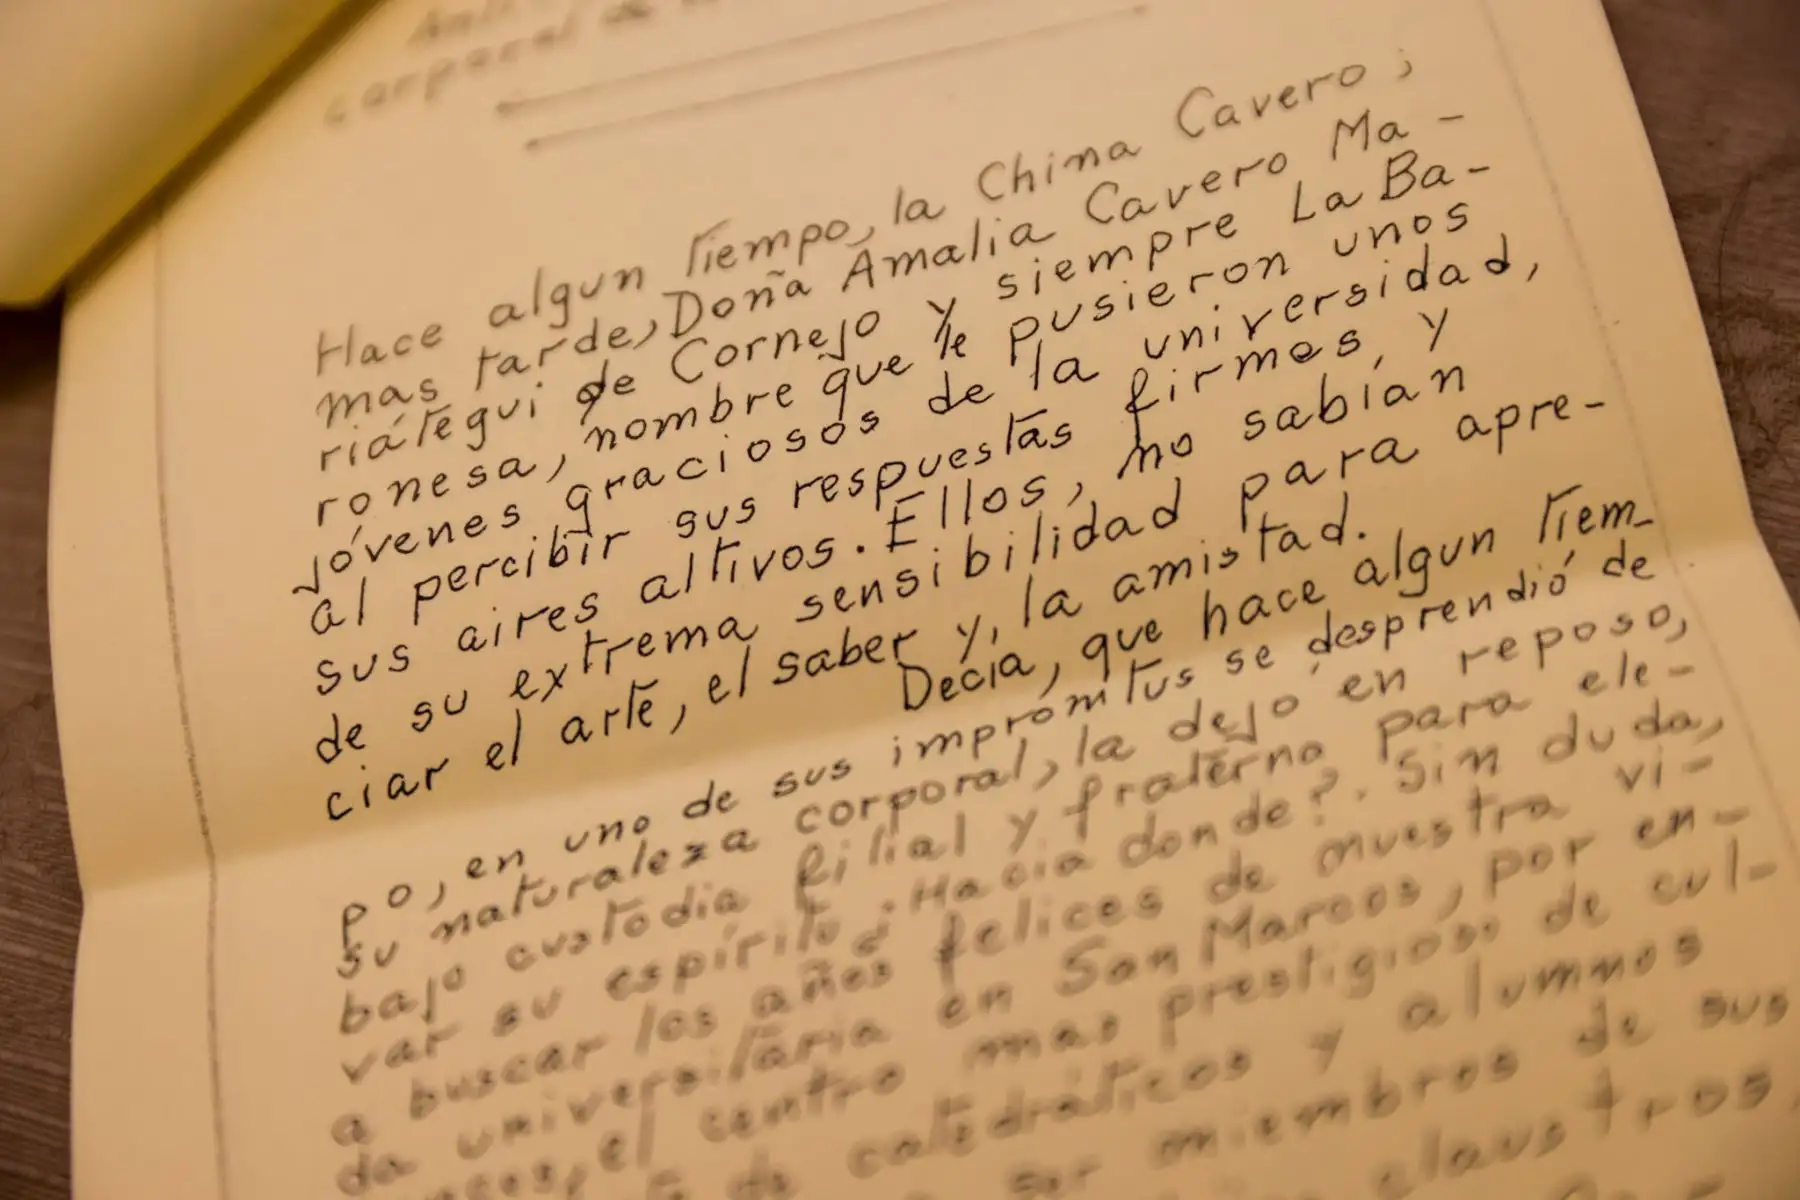 corporal de
Hace algun Tiempo, la China Cavero,
mas tarde, Doña Amalia Cavero Ma-
riátegui de Cornejo y siempre La Ba-
ronesa, nombre que le pusieron unos
jóvenes graciosos de la universidad,
al percibir sus respuestas firmes, y
sus aires altivos. Ellos, no sabían
de su extrema sensibilidad para apre-
ciar el arte, el saber y, la amistad.
Decia, que hace algun Tiem-
po, en uno de sus impromtus se desprendió de
su naturaleza corporal, la dejó en reposo,
bajo custodia filial y fraterna para ele-
var su espíritu. ¿Hacia donde?. Sin duda,
a buscar los años felices de nuestra vi-
da universitaria en San Marcos, por en-
tonces, el centro mas prestigioso de cul-
de catedráticos y alumnos
ser miembros de sus
claustros